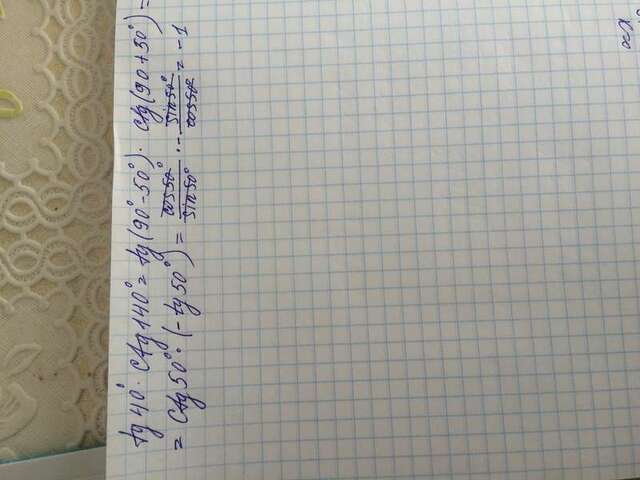 tg 40° · Ctg 140° = tg (90° - 50°) · Ctg (90 + 50°) =
= Ctg 50° · (- tg 50°) = cos 50° / sin 50° · - sin 50° / cos 50° = -1